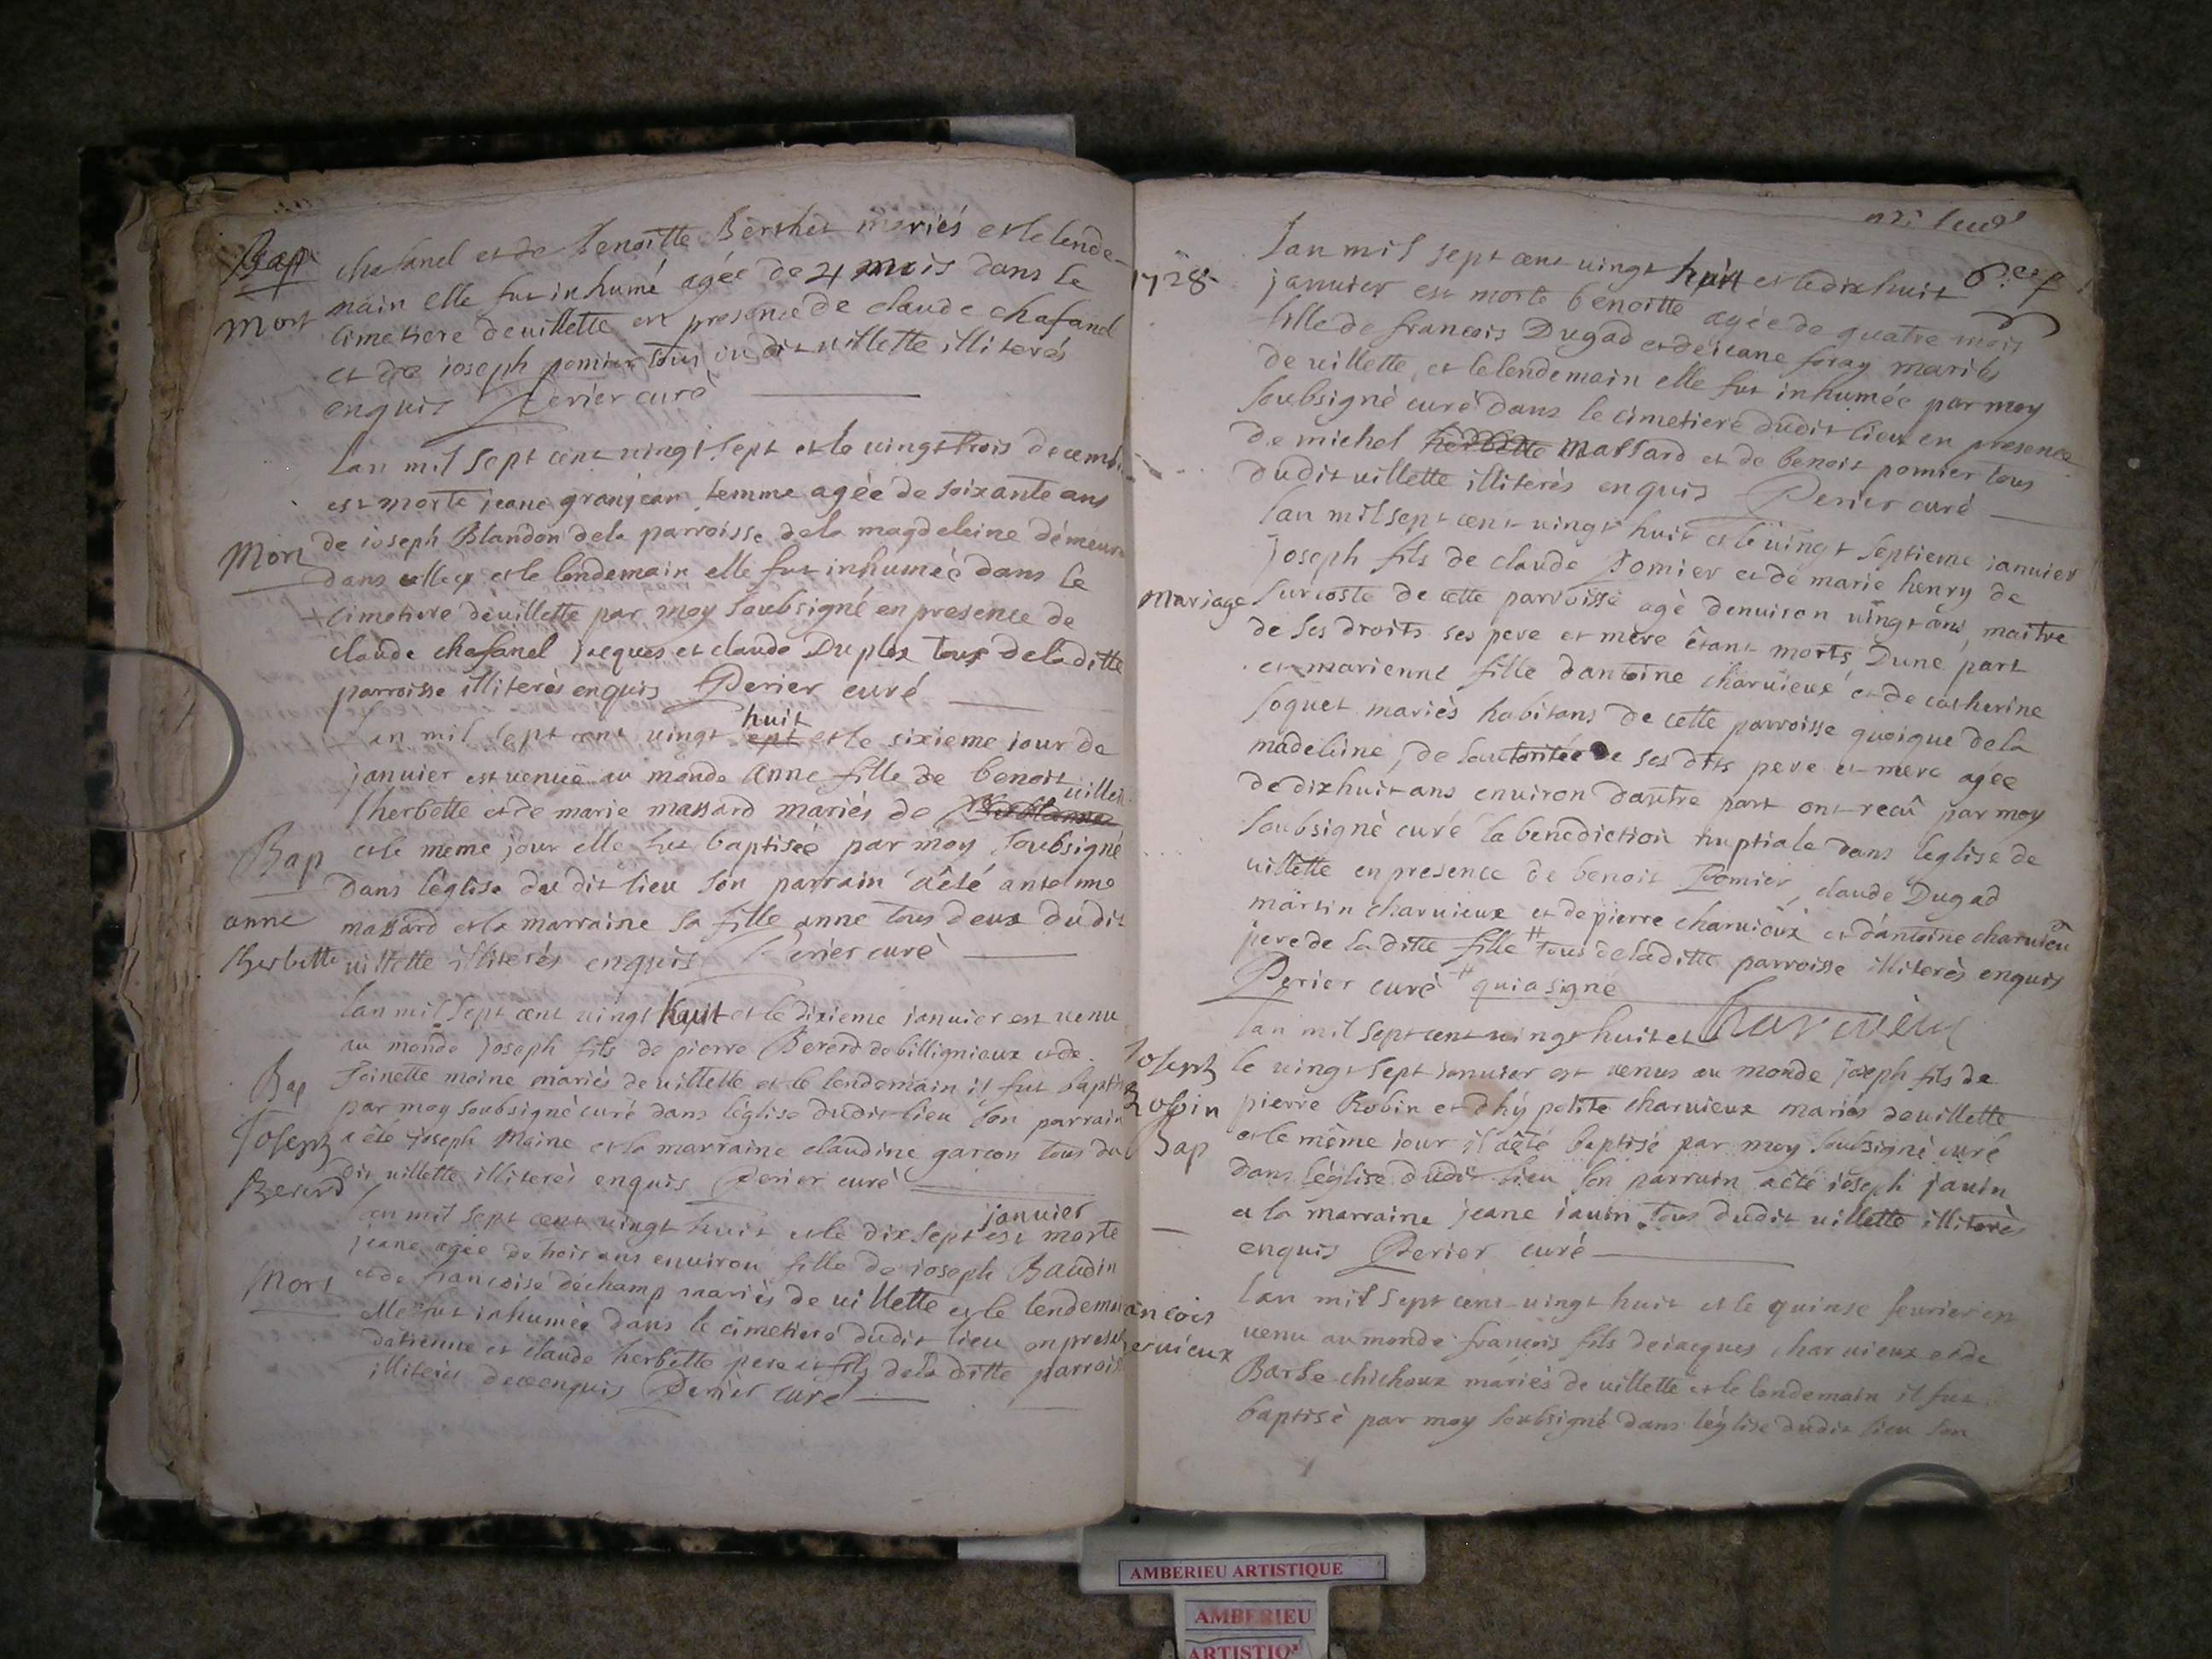 Bap
chafanel et de benoitte Berthet mariés et le lende-
Mort
main elle fut inhumé agée de 4 mois dans le
cimetiere de uillette en presence de claude chafanel
et de ioseph pomier tous du dit uillette illiterés
enquis Perier curé
Lan mil sept cent uingt sept et le uingt trois decemb
est morte jeane granjean femme agée de soixante ans
Mort
de ioseph Blandon de la parroisse de la magdeleine demeur
dans et le lendemain elle fut inhumée dans le
cimetiere de uillette par moy soubsigné en presence de
claude chafanel jacques et claude Duplex tous de la ditte
parroisse illiterés enquis Perier curé
huit
lan mil sept cent uingt sept et le sixieme iour de
januier est uenüe au monde anne fille de benoit
lherbette et de marie massard mariés de uillett
Bap
et le même jour elle fut baptisée par moy soubsigné
dans léglise du dit lieu son parrain a êté anselme
anne
massard et la marraine sa fille anne tous deux du dit
lherbette
uillette illiterés enquis Perier curé
lan mil sept cent uingt huit et le dixieme ianuier est uenu
au monde joseph fils de pierre Bererd de billignieux et de
Bap
Toinette moine mariés de uillette et le lendemain il fut bapti
par moy soubsigné curé dans léglise dudit lieu son parrain
Joseph
a été joseph Moine et la marraine claudine garcon tous du
Bererd
dit uillette illiterés enquis Perier curé
januier
lan mil sept cent uingt huit et le dix sept est morte
jeane agée de trois ans enuiron fille de ioseph Baudin
Mort
et de francoise dechamp mariés de uillette et le lendemai
elle fut inhumée dans le cimetiere dudit lieu en presen
detienne et claude herbette pere et fils de la ditte parrois
illiterés de ce enquis Perier curé
1728
lan mil sept cent uingt huit et le dix huit
januier est morte benoitte agée de quatre mois
fille de francois Dugad et de ieane foray mariés
de uillette, et le lendemain elle fut inhumée par moy
soubsigné curé dans le cimetiere dudit lieu en presence
de michel herbette massard et de benoit pomier tous
dudit uillette illiterés enquis Perier curé
lan mil sept cent uingt huit et le uingt septieme ianuier
joseph fils de claude Pomier et de marie henry de
Mariage
surcoste de cette parroisse agé denuiron uingt ans, maitre
de ses droits ses pere et mere étant morts, Dune part
et marienne fille dantoine charuieux et de catherine
soquet mariés habitans de cette parroisse quoique de la
madeleine, de lautoritée de ses dits pere et mere agée
de dixhuit ans enuiron dautre part ont recû par moy
soubsigné curé la benediction nuptiale dans léglise de
uillette en presence de benoit Pomier, claude Dugad
martin charuieux et de pierre charuieux et dantoine charuieu
pere de la ditte fille # tous de la ditte parroisse illiterés enquis
Perier curé # qui a signé
Charvieu
lan mil sept cent uingt huit et
Joseph
le uingt sept ianuier est uenus au monde joseph fils de
Robin
pierre Robin et dhÿpolite charuieux mariés de uillette
Bap
et le même iour il a êté baptisé par moy soubsigné curé
dans léglise dudit lieu son parrain a êté ioseph jauin
et la marraine jeane iauin tous dudit uillette illiterés
enquis Perier curé
lan mil sept cent uingt huit et le quinse feurier est
ancois
uenu au monde françois fils de iacques charuieux et de
eruieux
Barbe chichoux mariés de uillette et le lendemain il fut
baptisé par moy soubsigné dans léglise dudit lieu son
AMBERIEU ARTISTIQUE
AMBERIEU
ARTISTIQ